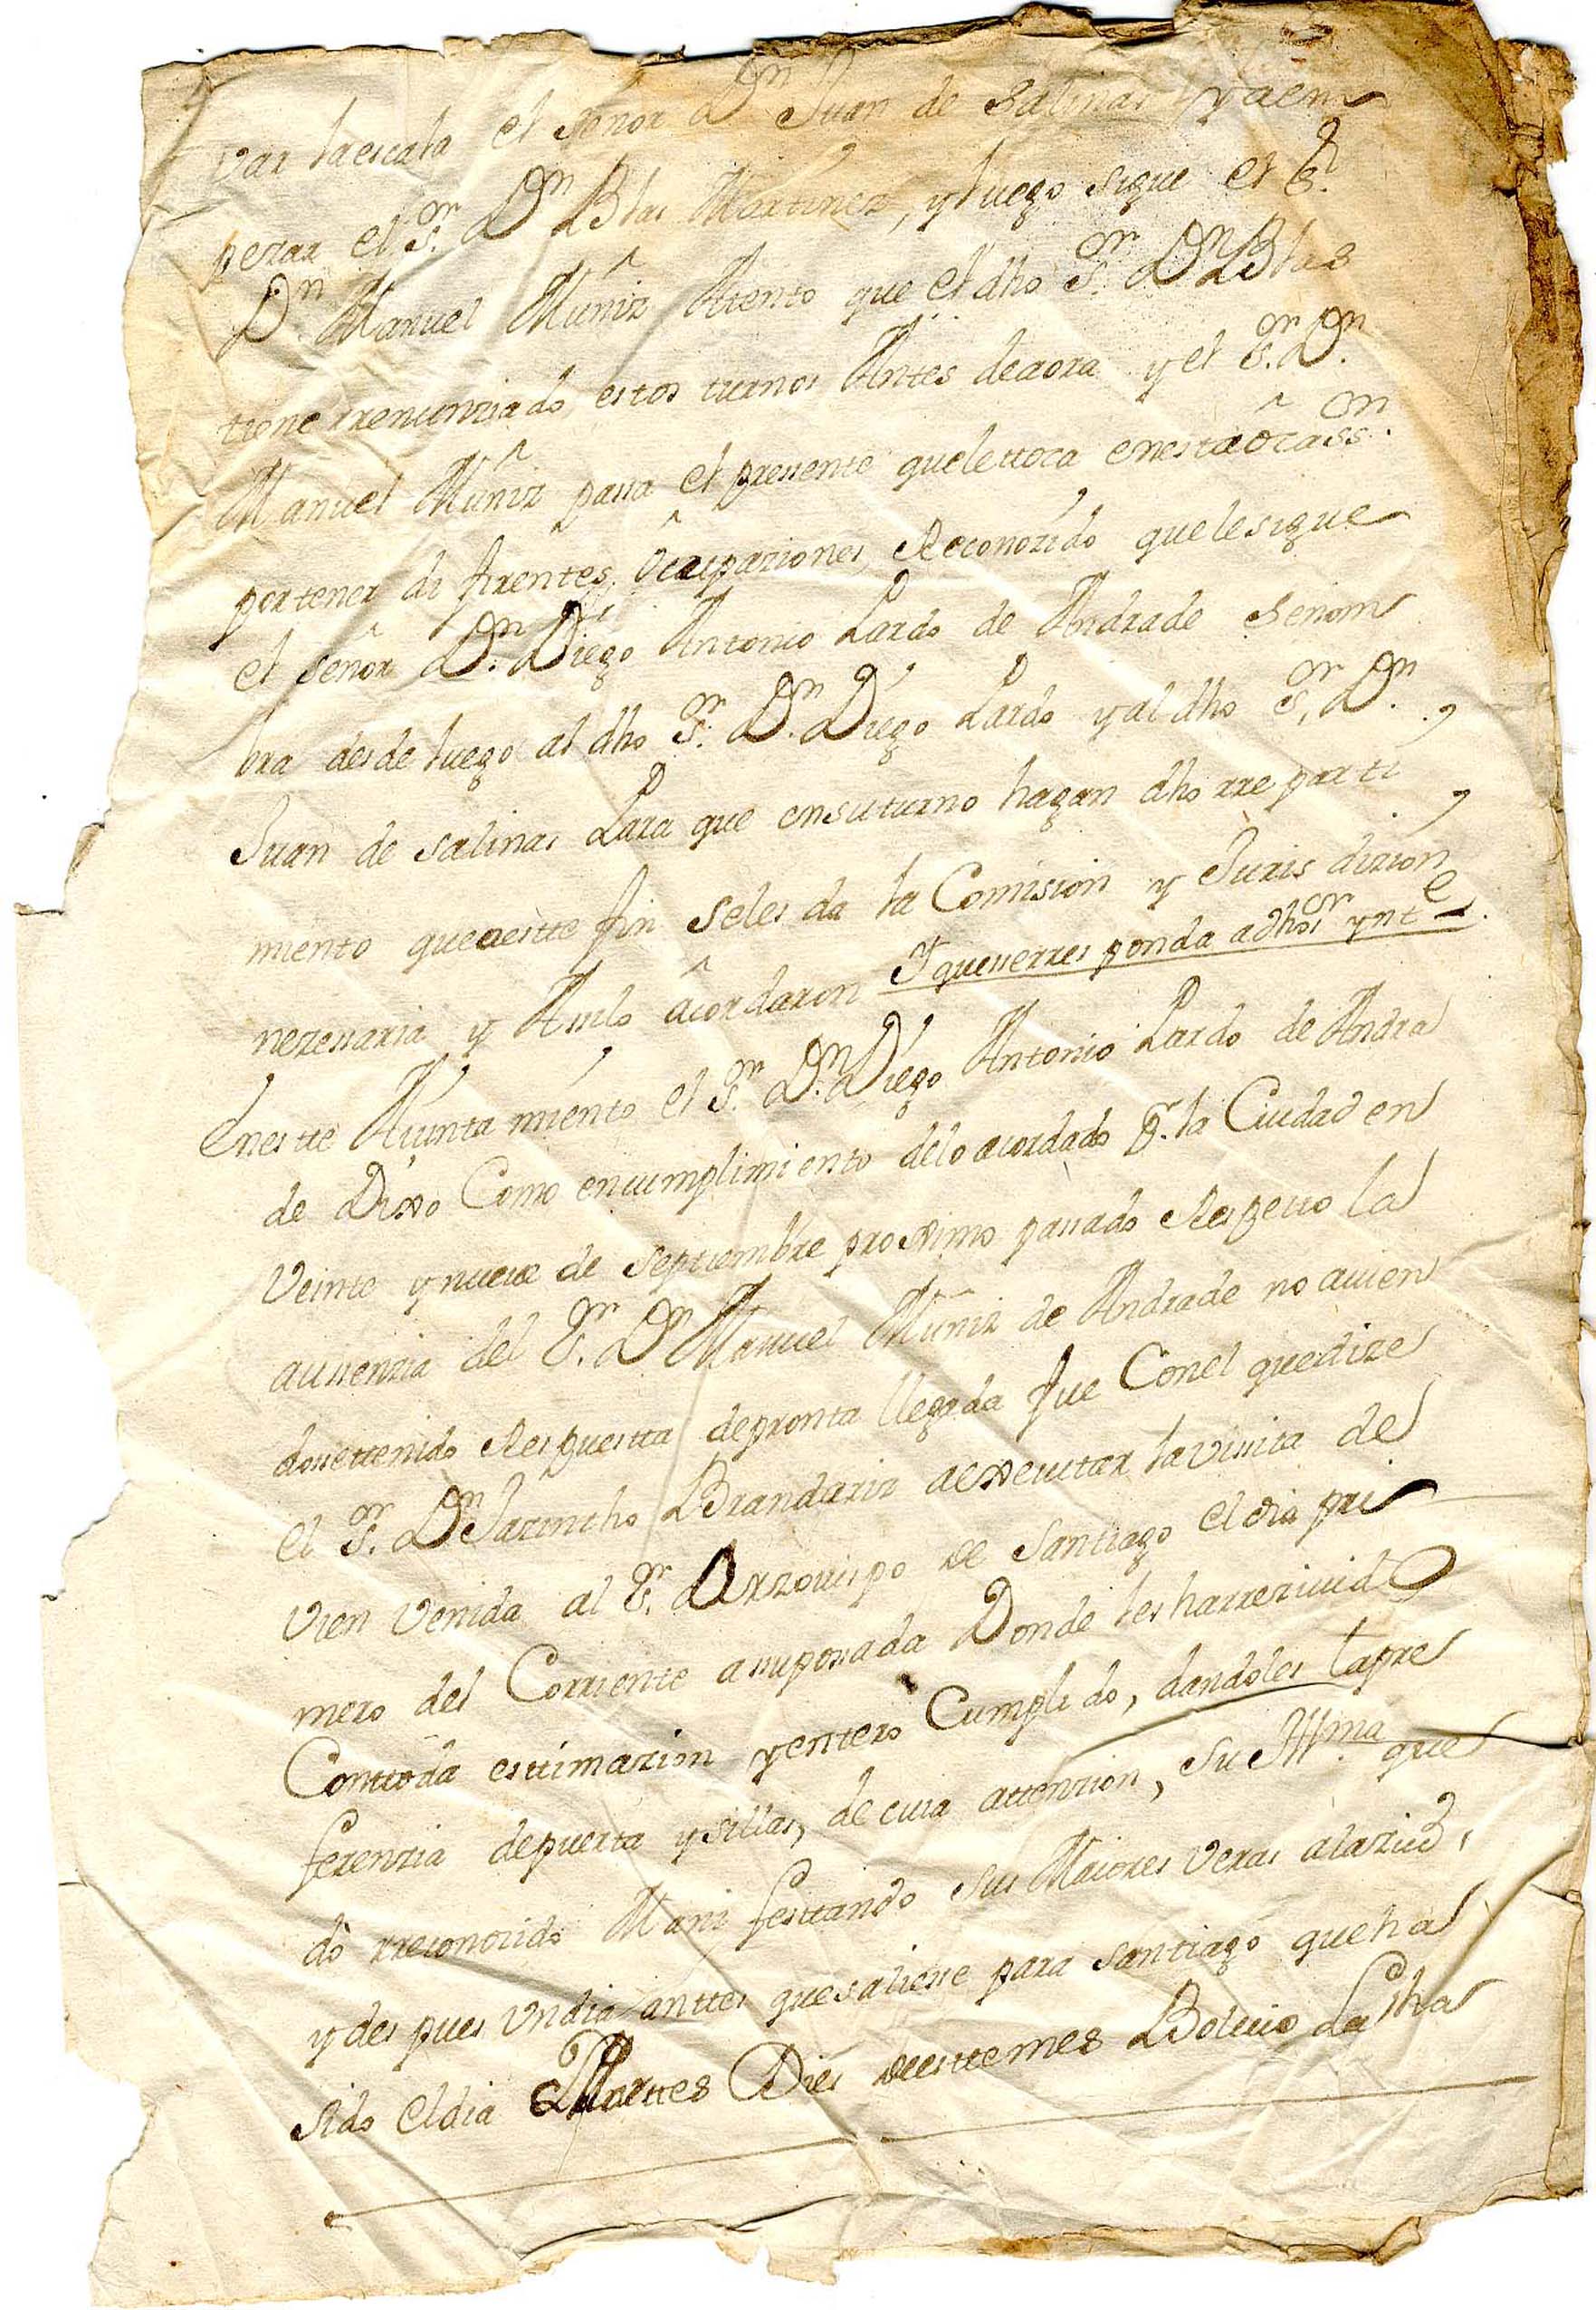 var la escala el Señor Dn Juan de Salinas y aem
pezar el Sr. Dn Blas Martinez, y luego sigue el Sr.
Dn. Manuel Muñiz Atento que el dho Sr. Dn Blas
tiene rrenunziado estos turnos Antes de aora y el Sr. Dn.
Manuel Muñiz passa el pressente que le ttoca en esta ôcassn.
por tener di firentes ôcupaziones, Reconozido que le sigue
el señor Dn. Diego Antonio Pardo de Andrade Senom
bra desde luego al dho Sr. Dn. Diego Pardo y al dho Sr. Dn.
Juan de Salinas Lara que en su turno hagan dho rreparti
miento que aeste fin seles da la Comision y Juris dizion
nezessaria y Assilo âcordaron Y que se rresponda a dhos sr ynte.
En este Aiuntamiento el Sr. Dn. Diego Antonio Pardo de Andra
de Dixo Como en cumplimiento delo acordado Pr. la Ciudad en
Veinte y nueve de septiembre proximo passado Respecto la
aussenzia del Sr. Dn Manuel Muñiz de Andrade no auien
dosse ttenido Respuestta de pronta llegada fue Con el que dize
el Sr. Dn Jazintho Brandariz a exeuttar la vissita de
vien venida al Sr. Arzouispo de Santiago el dia pri
mero del Corriente a su possada Donde les ha rreziuido
Con ttoda esttimazion y entero Cumplido, dandoles la pre
ferenzia de puerta y sillas, de cuia attenzion, su Illma que
do rreconozido Mani festtando sus Maiores veras a la ziud.
y des pues Un dia anttes que saliesse para Santiago que ha
sido el dia Marttes Dies de esttemes Boluio La dha